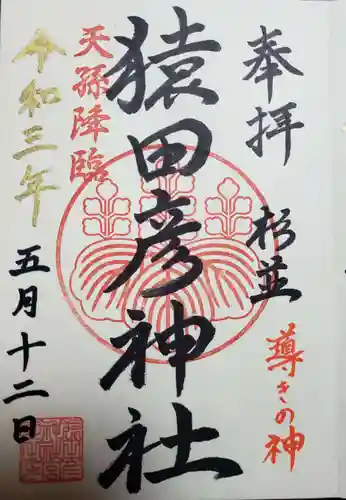 奉拝
杉並
導きの神
猿田彦神社
天孫降臨
令和三年
五月十二日